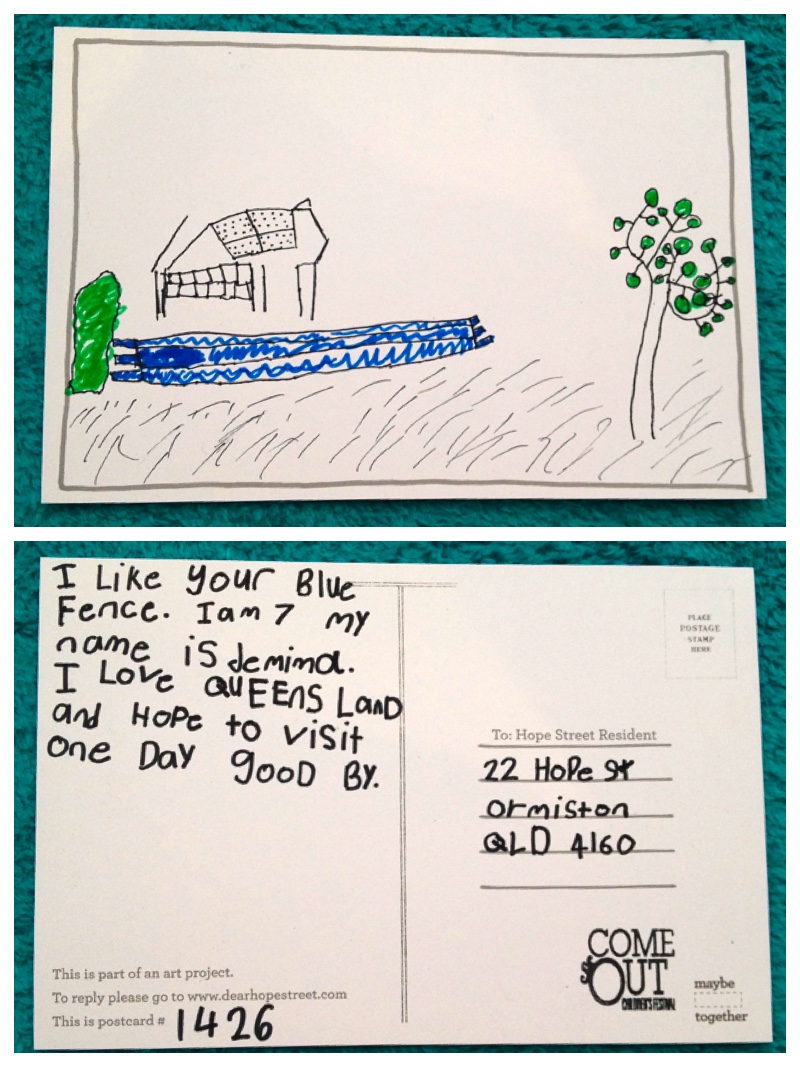 I Like your Blue
Fence. I am 7 my
name is Jemima.
I Love QUEENS LanD
and HoPe to visit
one Day gooD By.
This is part of an art project.
To reply please go to www.dearhopestreet.com
This is postcard # 1426
PLACE
POSTAGE
STAMP
HERE
To: Hope Street Resident
22 HoPe st
ormiston
QLD 4160
COME
OUT
CHILDREN'S FESTIVAL
maybe
together